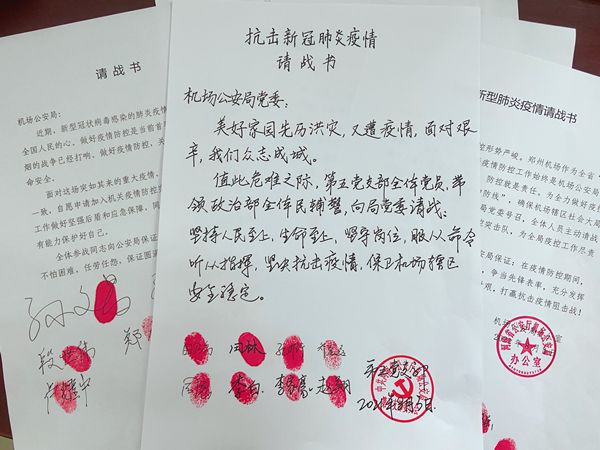 抗击新冠肺炎疫情
请战书
机场公安局党委:
美好家园先历洪灾,又遭疫情,面对艰
辛,我们众志成城。
值此危难之际,第五党支部全体党员,带
领政治部全体民辅警,向局党委请战:
坚持人民至上,生命至上,坚守岗位,服从命令
听从指挥,坚决抗击疫情,保卫机场辖区
安全稳定。
闫林
李白
第五党支部
2021年8月5日
请战书
机场公安局:
近期,新型冠状病毒感染的肺炎疫情
全国人民的心。做好疫情防控是当前首
烟的战争已经打响。做好疫情防控,关
命安全。
面对这场突如其来的重大疫情,
一致,自愿申请加入机关疫情防控
工作做好坚强后盾和应急保障,同
有能力保护好自己。
全体参战同志向公安局保证
不怕困难,任劳任怨。保证圆满
郑
新型肺炎疫情请战书
控形势严峻。郑州机场作为全省
疫情防控工作始终是机场公安局
、防控就是责任。为全力做好疫情
防线”,确保机场辖区社会大局
局党委号召,全体人民主动请战
突击队,为全局疫控工作尽责
安局保证,在疫情防控期间,
,争当先锋表率,充分发挥
项,打赢抗击疫情阻击战!
机场
办公室